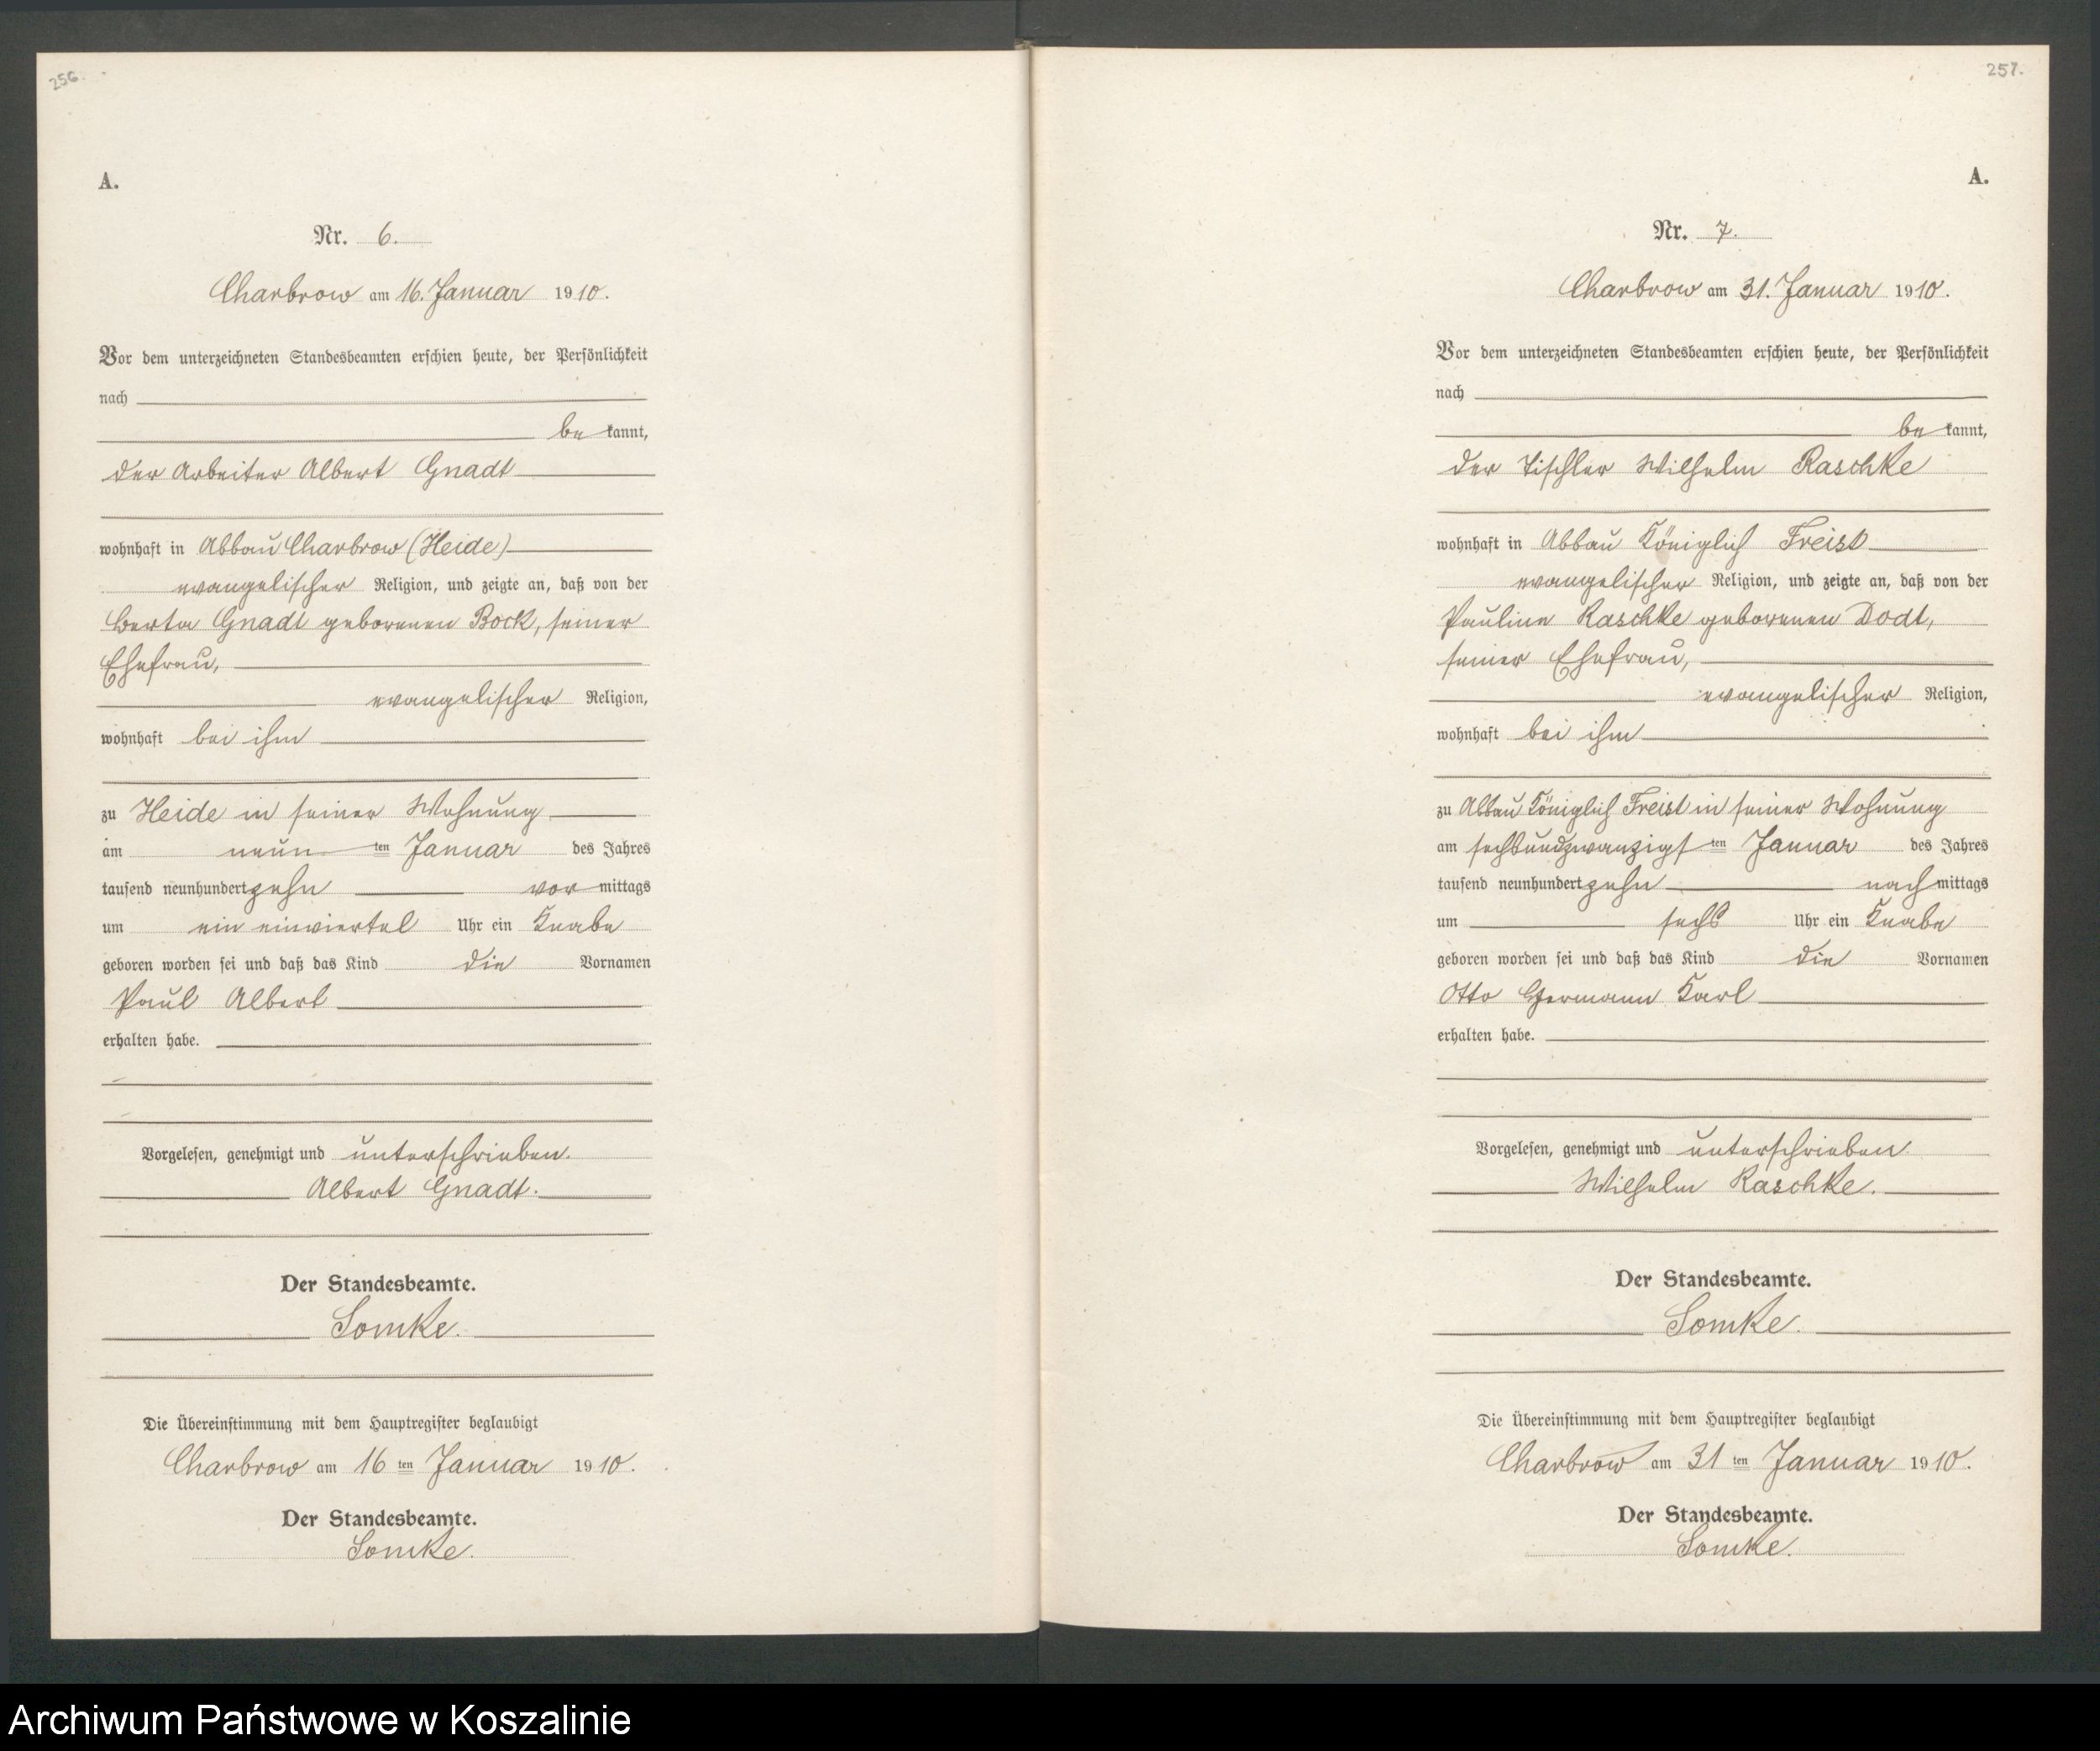 256.
A.
Nr. 6.
Charbrow am 16. Januar 1910.
Vor dem unterzeichneten Standesbeamten erschien heute, der Persönlichkeit
nach
be kannt,
der Arbeiter Albert Gnadt
wohnhaft in Abbau Charbrow (Heide)
evangelischer Religion, und zeigte an, daß von der
Berta Gnadt geborenen Bock, seiner
Ehefrau,
evangelischer Religion,
wohnhaft bei ihm
zu Heide in seiner Wohnung
am neun ten Januar des Jahres
tausend neunhundert zehn vor mittags
um ein einviertel Uhr ein Knabe
geboren worden sei und daß das Kind die Vornamen
Paul Albert
erhalten habe.
Vorgelesen, genehmigt und unterschrieben.
Albert Gnadt.
Der Standesbeamte.
Somke.
Die Übereinstimmung mit dem Hauptregister beglaubigt
Charbrow am 16 ten Januar 1910.
Der Standesbeamte.
Somke.
257.
A.
Nr. 7.
Charbrow am 31. Januar 1910.
Vor dem unterzeichneten Standesbeamten erschien heute, der Persönlichkeit
nach
be kannt,
der Tischler Wilhelm Raschke
wohnhaft in Abbau Königlich Freist
evangelischer Religion, und zeigte an, daß von der
Pauline Raschke geborenen Dodt,
seiner Ehefrau,
evangelischer Religion,
wohnhaft bei ihm
zu Abbau Königlich Freist in seiner Wohnung
am sechsundzwanzigs ten Januar des Jahres
tausend neunhundert zehn nach mittags
um sechs Uhr ein Knabe
geboren worden sei und daß das Kind die Vornamen
Otto Hermann Karl
erhalten habe.
Vorgelesen, genehmigt und unterschrieben.
Wilhelm Raschke.
Der Standesbeamte.
Somke.
Die Übereinstimmung mit dem Hauptregister beglaubigt
Charbrow am 31 ten Januar 1910.
Der Standesbeamte.
Somke.
Archiwum Państwowe w Koszalinie